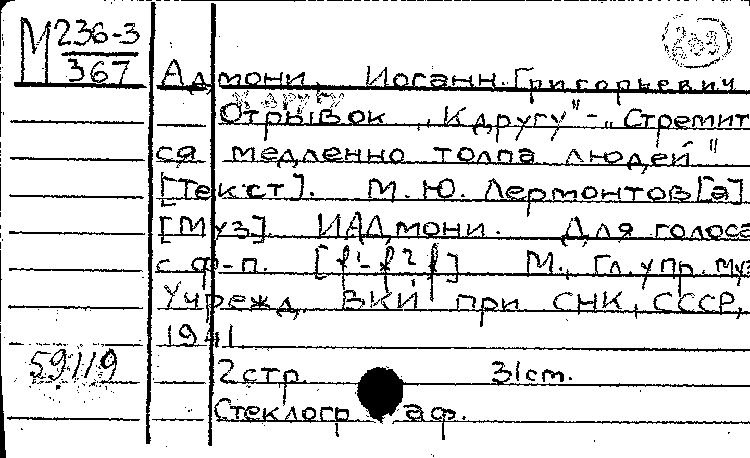 М 236-3
367
203
Адмони, Иоганн Григорьевич
Отрывок „К другу" - „Стремит
ся медленно толпа людей"
[Текст]. М.Ю. Лермонтов[а]
[Муз]. И Адмони. Для голоса
с ф-п. [f¹-f²f]. М., Гл. упр. муз
Учрежд. ВКИ при СНК, СССР,
1941.
59119
2 стр. 31 cm.
Стеклограф.